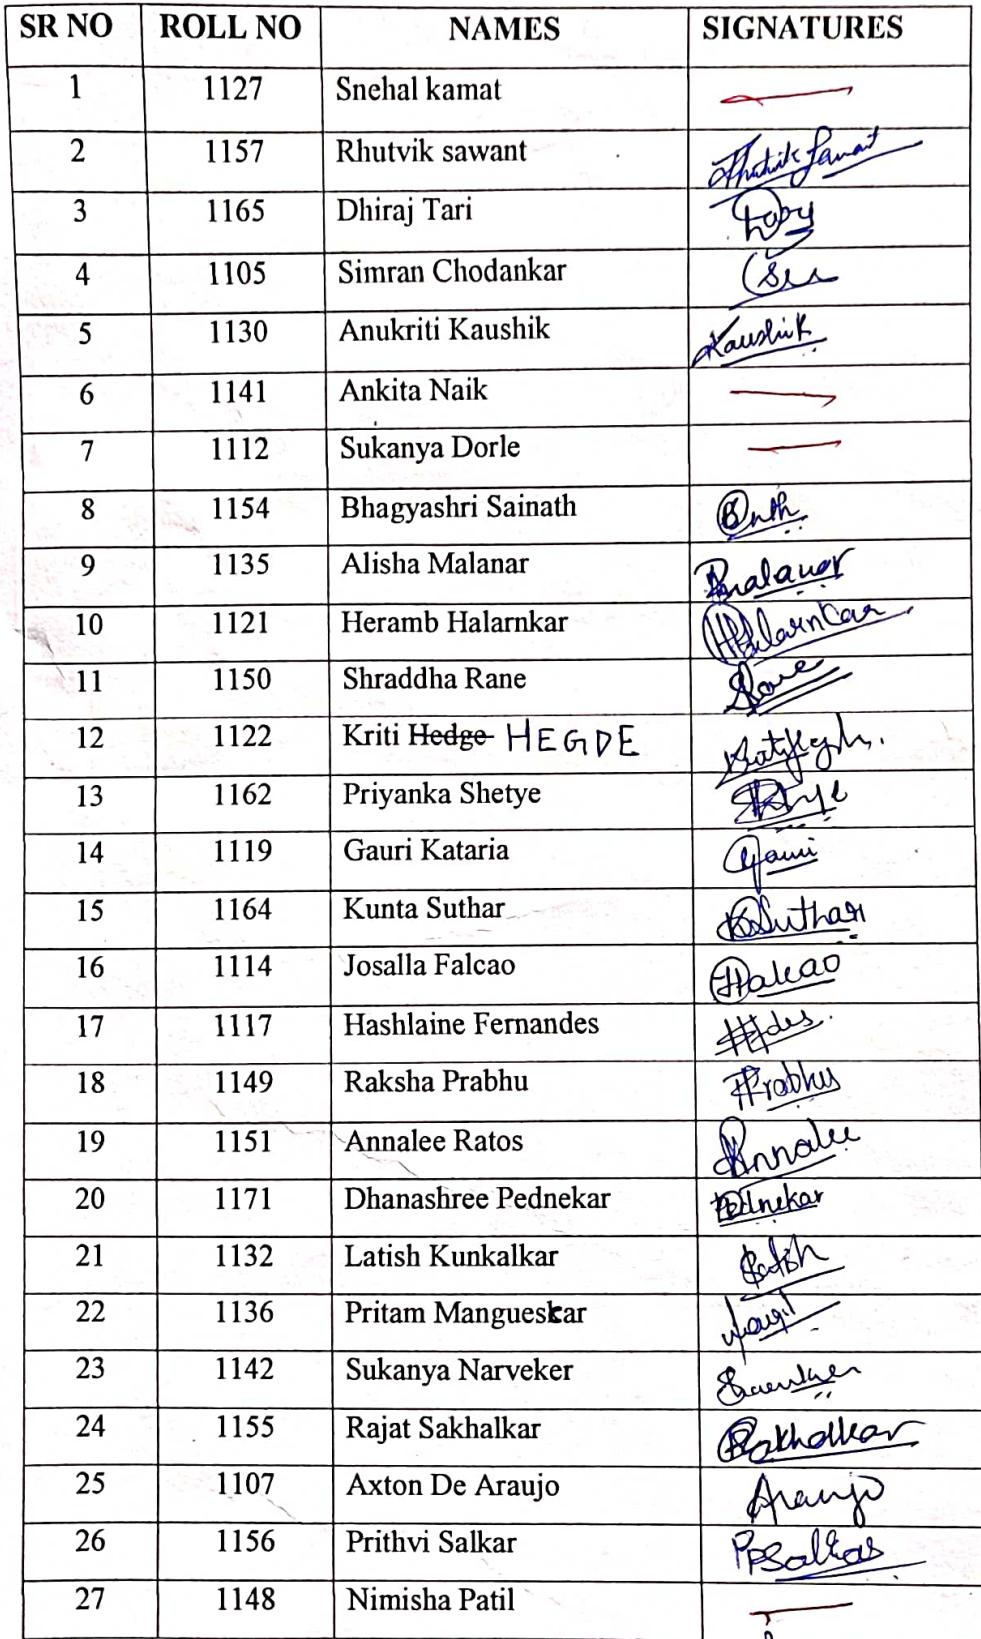 SR NO ROLL NO NAMES SIGNATURES
1 1127 Snehal kamat
2 1157 Rhutvik sawant Rhutvik Sawant
3 1165 Dhiraj Tari
4 1105 Simran Chodankar
5 1130 Anukriti Kaushik Kaushik
6 1141 Ankita Naik
7 1112 Sukanya Dorle
8 1154 Bhagyashri Sainath
9 1135 Alisha Malanar Amalanar
10 1121 Heramb Halarnkar HHalarnkar
11 1150 Shraddha Rane SRane
12 1122 Kriti Hedge HEGDE
13 1162 Priyanka Shetye
14 1119 Gauri Kataria Gauri
15 1164 Kunta Suthar KSuthar
16 1114 Josalla Falcao JFalcao
17 1117 Hashlaine Fernandes
18 1149 Raksha Prabhu RPrabhu
19 1151 Annalee Ratos Annalee
20 1171 Dhanashree Pednekar Pednekar
21 1132 Latish Kunkalkar Latish
22 1136 Pritam Mangueskar
23 1142 Sukanya Narveker
24 1155 Rajat Sakhalkar Sakhalkar
25 1107 Axton De Araujo Araujo
26 1156 Prithvi Salkar PPSalkar
27 1148 Nimisha Patil